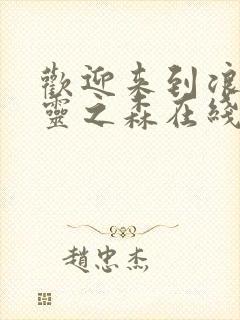 歡迎来到浪
靈之森在綫
趙忠杰